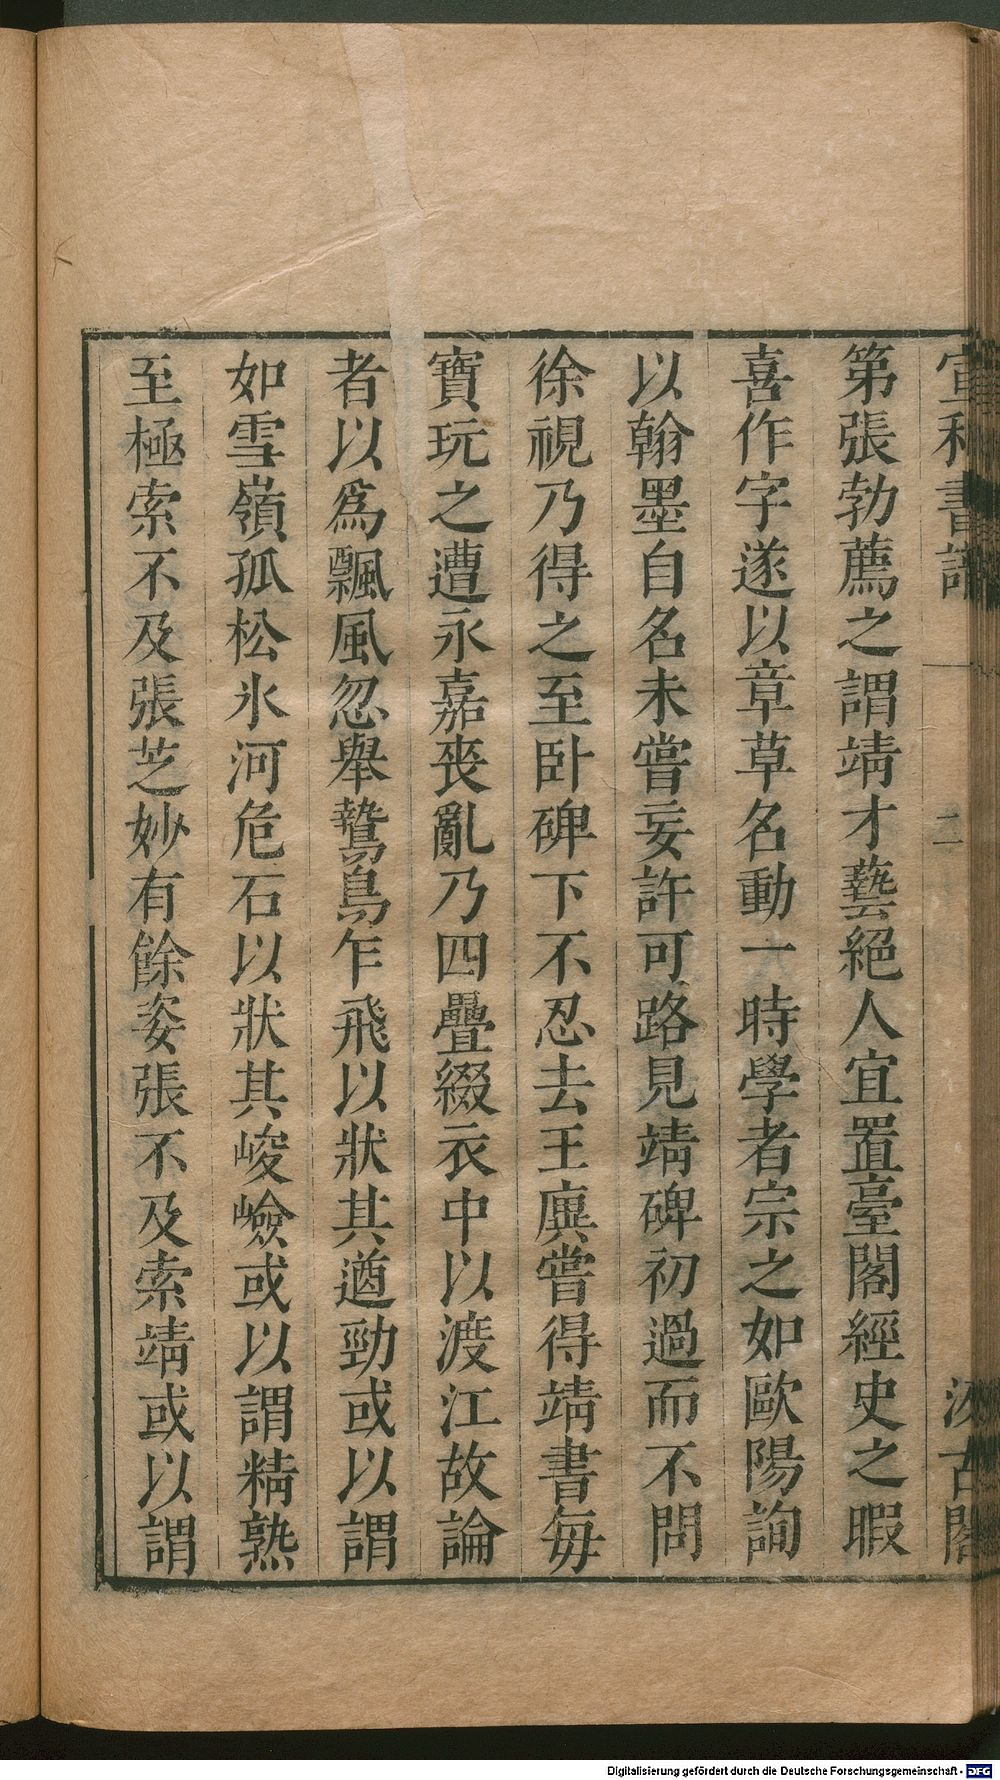 宣和書譜 二 汲古閣
第張勃薦之謂靖才藝絕人宜置臺閣經史之暇
喜作字遂以章草名動一時學者宗之如歐陽詢
以翰墨自名未嘗妄許可路見靖碑初過而不問
徐視乃得之至卧碑下不忍去王廙嘗得靖書每
寶玩之遭永嘉喪亂乃四疊綴衣中以渡江故論
者以爲飄風忽舉鷙鳥乍飛以狀其遒勁或以謂
如雪嶺孤松氷河危石以狀其峻嶮或以謂精熟
至極索不及張芝妙有餘姿張不及索靖或以謂
Digitalisierung gefördert durch die Deutsche Forschungsgemeinschaft - DFG